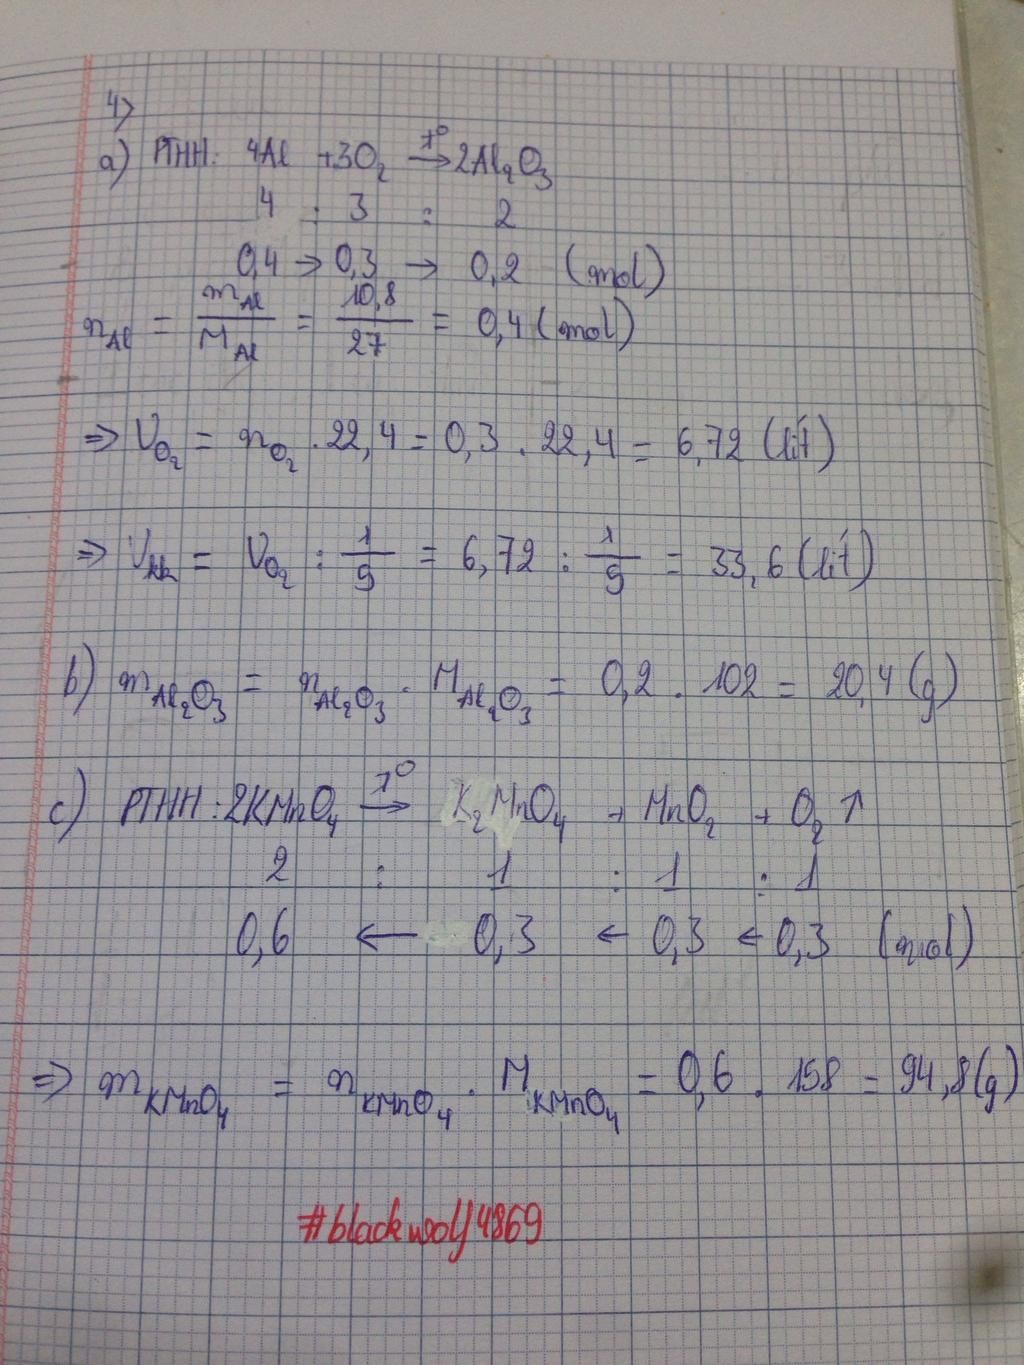 4>
a) PTHH: 4Al + 3O₂ →(t°) 2Al₂O₃
4 : 3 : 2
0,4 → 0,3 → 0,2 (mol)
n_Al = m_Al / M_Al = 10,8 / 27 = 0,4 (mol)
⇒ V_O₂ = n_O₂ . 22,4 = 0,3 . 22,4 = 6,72 (lít)
⇒ V_kk = V_O₂ : 1/5 = 6,72 : 1/5 = 33,6 (lít)
b) m_Al₂O₃ = n_Al₂O₃ . M_Al₂O₃ = 0,2 . 102 = 20,4 (g)
c) PTHH: 2KMnO₄ →(t°) K₂MnO₄ + MnO₂ + O₂ ↑
2 : 1 : 1 : 1
0,6 ← 0,3 ← 0,3 ← 0,3 (mol)
⇒ m_KMnO₄ = n_KMnO₄ . M_KMnO₄ = 0,6 . 158 = 94,8 (g)
#blackwolf4869